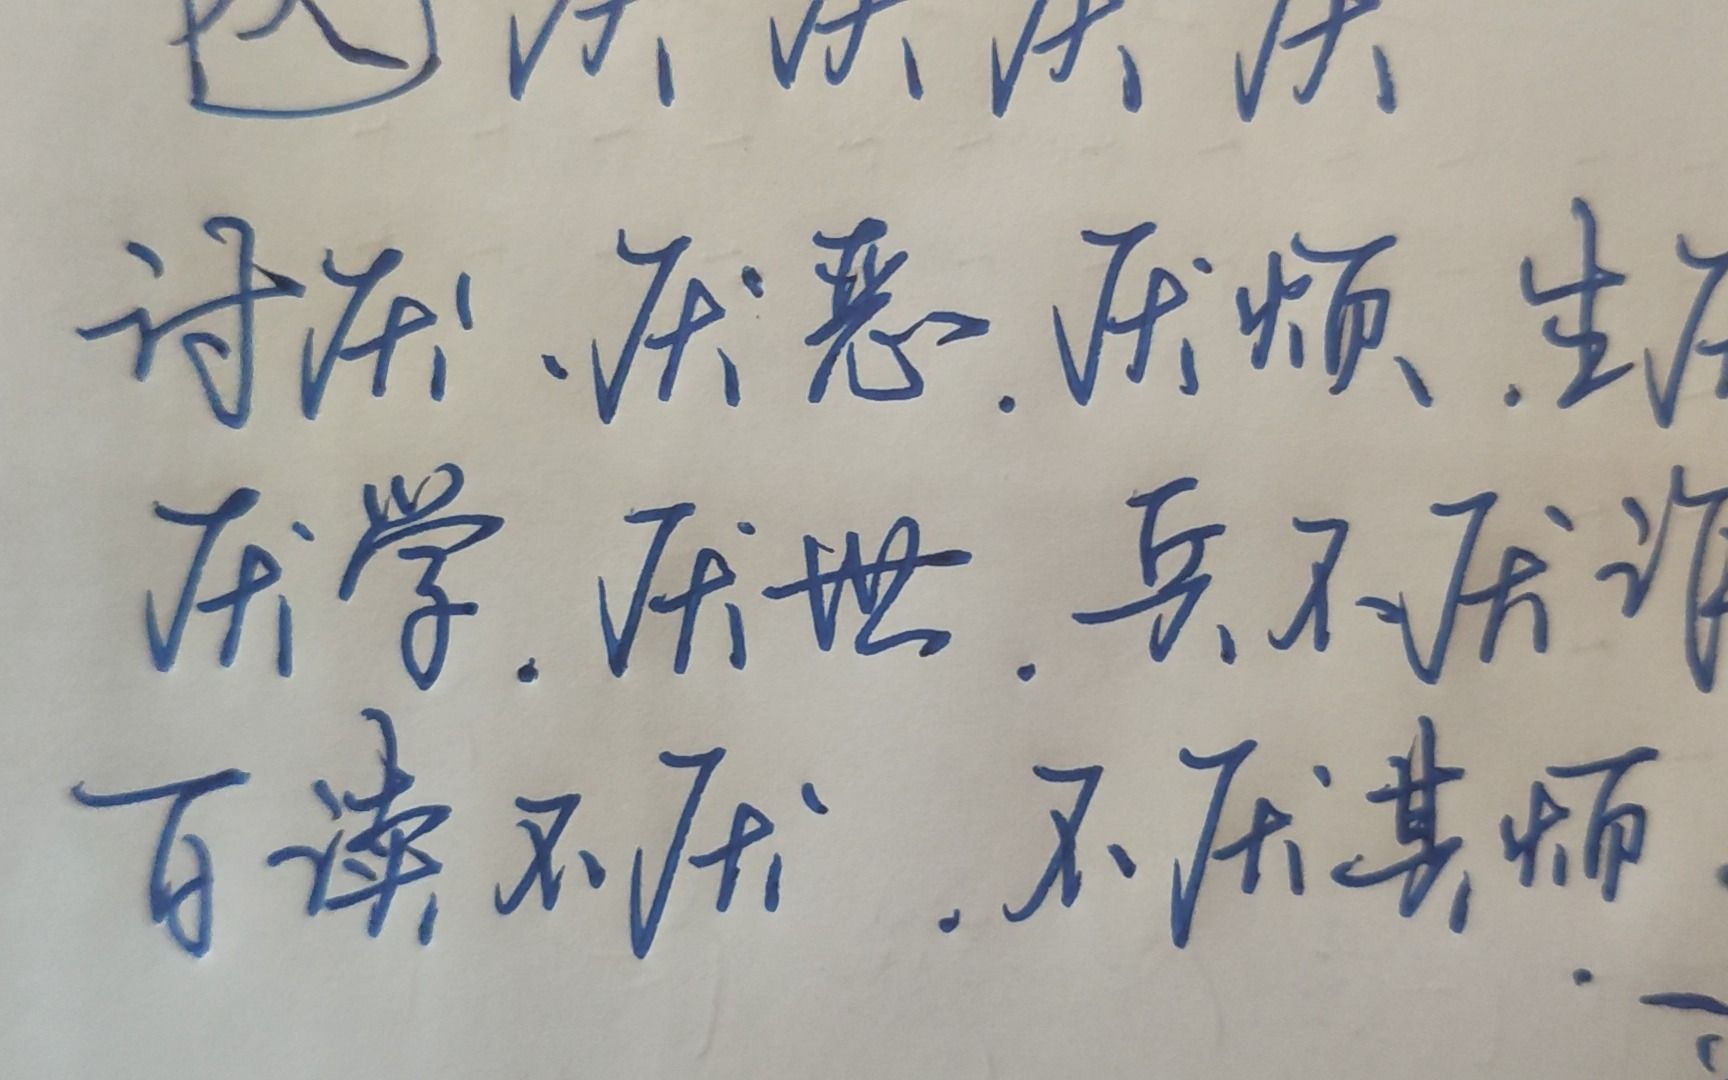 厌 厌 厌 厌
讨厌、厌恶.厌烦.生
厌学.厌世.兵不厌
百读不厌.不厌其烦